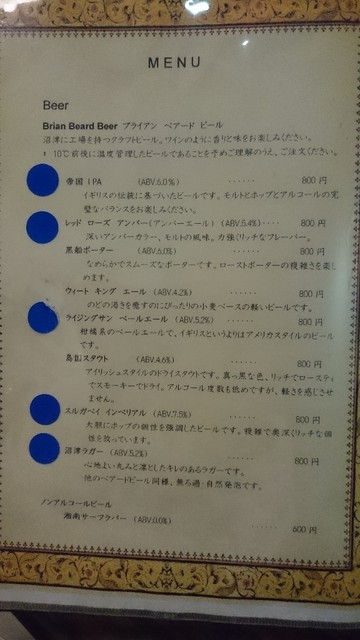 MENU
Beer
Brian Beard Beer ブライアン ベアード ビール
沼津に工場を持つクラフトビール。ワインのように香りと味をお楽しみください。
10℃前後に温度管理したビールであることを予めご理解のうえ、ご注文ください。
帝国 IPA (ABV.6.0%) ...... 800 円
イギリスの伝統に基づいたビールです。モルトとホップとアルコールの完
璧なバランスをお楽しみください。
レッド ローズ アンバー(アンバーエール) (ABV.5.4%)···· 800 円
深いアンバーカラー、モルトの風味。力強くリッチなフレーバー。
黒船ポーター (ABV.6.0%) ...... 800 円
なめらかでスムーズなポーターです。ローストポーターの複雑さを楽し
めます。
ウィート キング エール (ABV.4.2%) ...... 800 円
のどの渇きを癒すのにぴったりの小麦ベースの軽いビールです。
ライジングサン ペールエール (ABV.5.2%) ...... 800 円
柑橘系のペールエールで、イギリスというよりはアメリカスタイルのビール
です。
島国スタウト (ABV.4.6%) ...... 800 円
アイリッシュスタイルのドライスタウトです。真っ黒な色、リッチでロースティ
でスモーキーでドライ。アルコール度数も低めですが、軽さを感じさせ
ません。
スルガベイ インペリアル (ABV.7.5%) ...... 800 円
大胆にホップの個性を強調したビールです。複雑で奥深くリッチな個
性を放っています。
沼津ラガー (ABV.5.2%) ...... 800 円
心地よい丸みと凛としたキレのあるラガーです。
他のベアードビール同様、無ろ過・自然発泡です。
ノンアルコールビール
湘南サーフラバー (ABV.0.0%) ...... 600 円